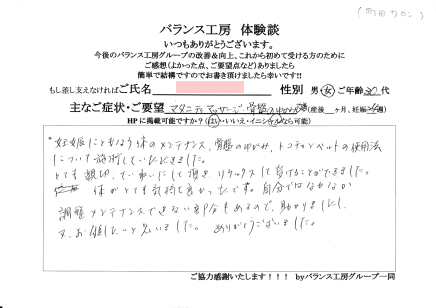 (町田サロン)
バランス工房 体験談
いつもありがとうございます。
今後のバランス工房グループの改善&向上、これから初めて受ける方のために
ご感想(よかった点、ご要望点など)ありましたら
簡単で結構ですのでお書き頂けましたら幸いです!!
もし差し支えなければご氏名 性別 男・女 ご年齢 30 代
主なご症状・ご要望 マタニティマッサージ・骨盤のゆがみ (産後 ヶ月、妊娠 週)
HPに掲載可能ですか?(はい・いいえ・イニシャルなら可能)
・妊娠にともなう体のメンテナンス、骨盤のゆがみ、トコチャンベルトの使用法
について施術していただきました。
とても親切、ていねいにして頂き リラックスして受けることができました。
体がとても気持ち良かったです。自分ではなかなか
調整、メンテナンスできない部分もあるので、助かりましたし、
又、お願いしたいと思いました。 ありがとうございました。
ご協力感謝いたします!!! byバランス工房グループ一同